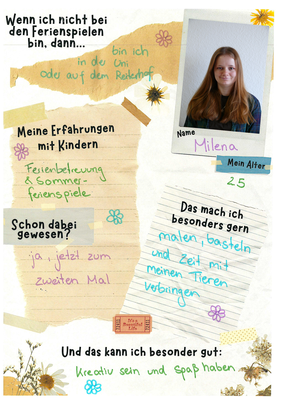 Wenn ich nicht bei
den Ferienspielen
bin, dann...
bin ich
in der Uni
oder auf dem Reiterhof
Name
Milena
Mein Alter
25
Meine Erfahrungen
mit Kindern
Ferienbetreuung
& Sommer-
ferienspiele
Schon dabei
gewesen?
ja, jetzt zum
zweiten Mal
Das mach ich
besonders gern
malen, basteln
und Zeit mit
meinen Tieren
verbringen
Und das kann ich besonder gut:
Kreativ sein und Spaß haben